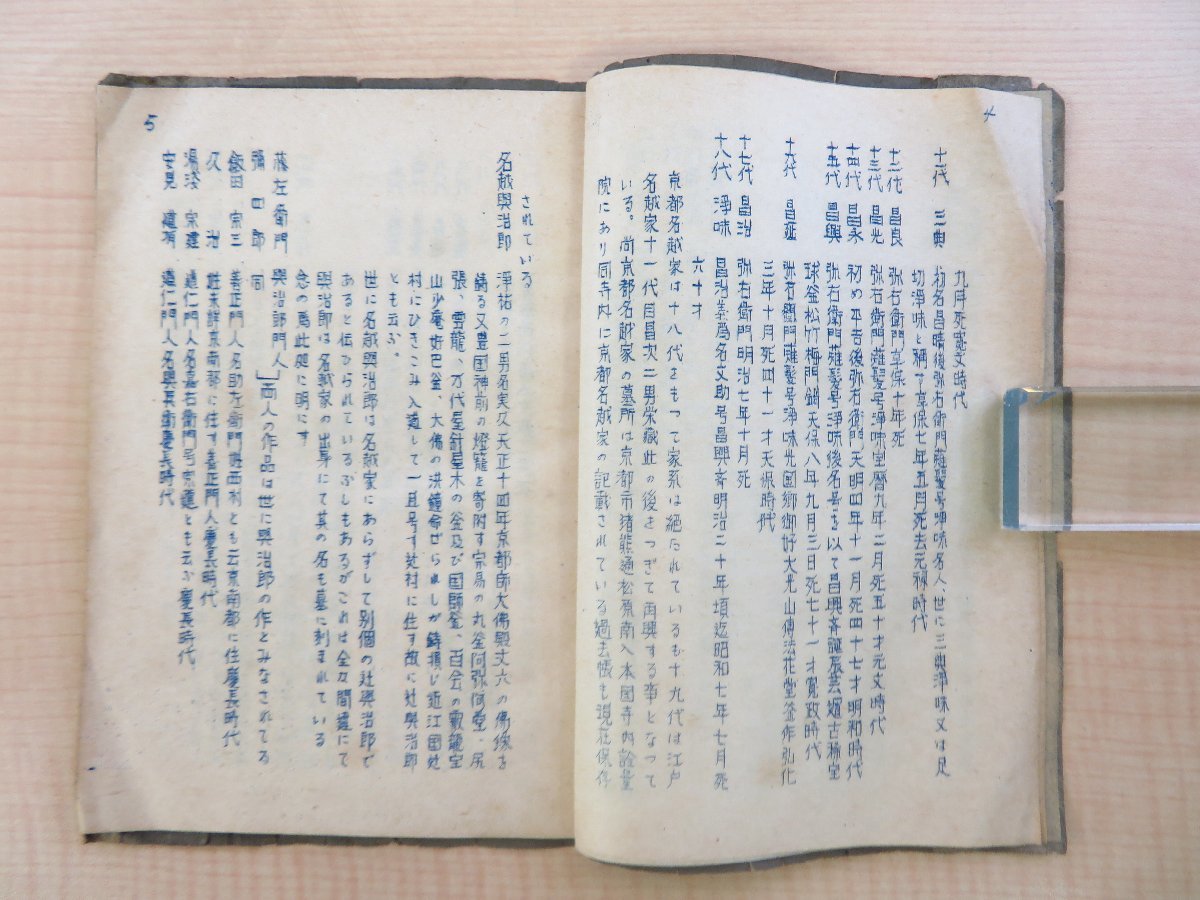 4
九月死寛文時代
十一代 三典 初名昌晴後弥右衛門薙髪号浄味名人、世に三典浄味又は足
切浄味と称す享保七年五月死去元禄時代
十二代 昌良 弥右衛門享保十年死
十三代 昌光 弥右衛門薙髪号浄味宝暦九年二月死五十才元文時代
十四代 昌永 初め平吉後弥右衛門天明四年十一月死四十七才明和時代
十五代 昌興 弥右衛門薙髪号浄味後名号を以て昌興斉誕辰芸堀古稀宝
球釜松竹梅門鎖天保八年九月三日死七十一才寛政時代
十六代 昌延 弥右衛門薙髪号浄味先国郷御好大光山傳法花堂釜作弘化
三年十月死四十一才天保時代
十七代 昌治 弥右衛門明治七年十月死
十八代 浄味 昌治養為名文助号昌興斉明治二十年頃迄昭和七年七月死
六十才
京都名越家は十八代をもって家系は絶たれているも十九代は江戸
名越家十一代目昌次二男栄蔵此の後をつぎて再興する事となって
いる。尚京都名越家の墓所は京都市猪熊通松原南入本国寺内
院にあり同寺内に京都名越家の記載されている過去帳も現在保存
5
されている
名越與治郎 浄祐の二男名実久天正十四年京都師大佛殿丈六の佛像を
鋳る又豊国神前の燈籠を寄附す宗易の丸釜阿弥陀堂、尻
張、雲龍、万代屋針屋木の釜及び国師釜、百会の霰龍宝
山少庵好巴釜、大佛の洪鐘命ぜられしが鋳損じ近江国辻
村にひきこみ入道して一旦号す辻村に住す故に辻與治郎
とも云ふ。
世に名越與治郎は名越家にあらずして別個の辻與治郎で
あると伝ひられているふしもあるがこれは全々間違にて
與治郎は名越家の出身にて其の名も墓に刻まれている
念の為此処に明にす
藤左衛門 與治郎門人
彌四郎 同 」両人の作品は世に與治郎の作とみなされてる
飯田 宗三 善正門人名助左衛門誰西利とも云京南都に住慶長時代
久 治 姓未詳京南都に住す善正門人慶長時代
湯浅 宗建 道仁門人名嘉右衛門号宗道とも云ふ慶長時代
安見 道有 道仁門人名與兵衛慶長時代